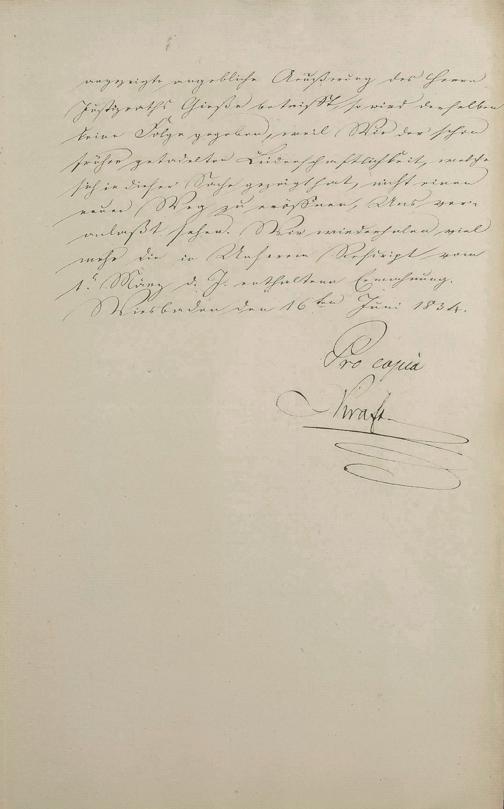 angezeigte angebliche Äußerung des Herrn
Justizraths Gieße betrifft, so wird derselben
keine Folge gegeben, weil Wir der schon
früher getadelten Leidenschaftlichkeit, welche
sich in dieser Sache gezeigt hat, nicht einen
neuen Weg zu eröffnen, Uns ver-
anlaßt sehen. Wir wiederholen viel
mehr die in Unserem Rescript vom
1t. März d. J. enthaltene Ermahnung.
Wiesbaden den 16ten Juni 1834.
Pro copia